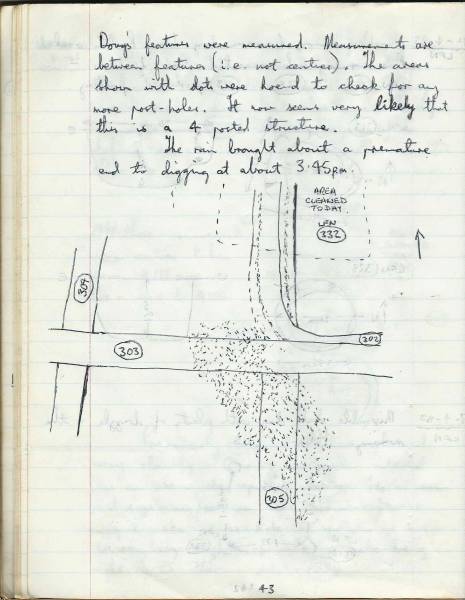 Doug's features were measured. Measurements are
between features (i.e. not centres). The areas
shown with dots were hoe'd to check for any
more post-holes. It now seems very likely that
this is a 4 posted structure.
The rain brought about a premature
end to digging at about 3.45pm.
AREA
CLEANED
TODAY.
LFN
332
304
303
302
305
43